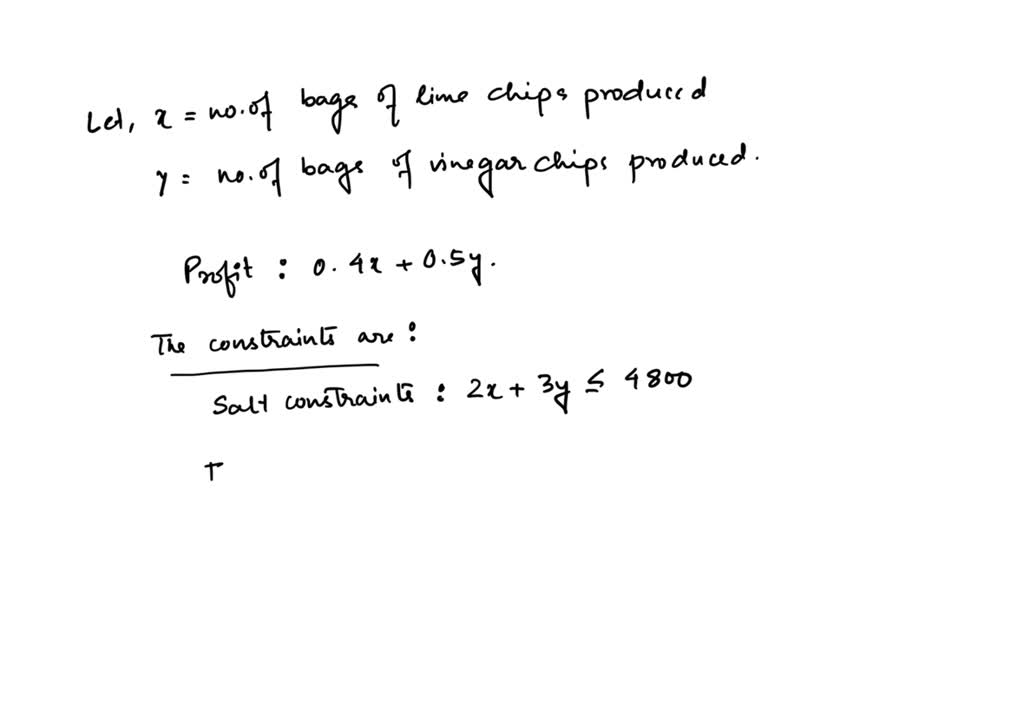 Let, x = no. of bags of lime chips produced
y = no. of bags of vinegar chips produced.
Profit : 0.4x + 0.5y.
The constraints are :
Salt constraints : 2x + 3y ≤ 4800
T